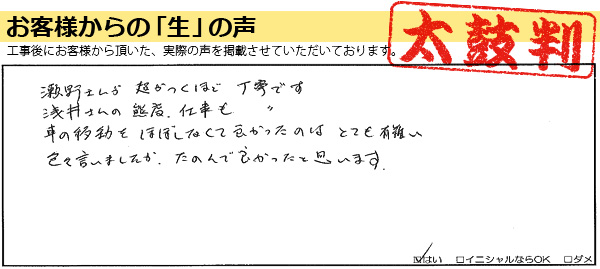 お客様からの「生」の声
工事後にお客様から頂いた、実際の声を掲載させていただいております。
太鼓判
瀬野さんが 超がつくほど 丁寧です
浅井さんの 態度、仕事も 〃
車の移動を ほぼしなくて良かったのは とても有難い
色々言いましたが、たのんで良かったと思います。
☑はい □イニシャルならOK □ダメ